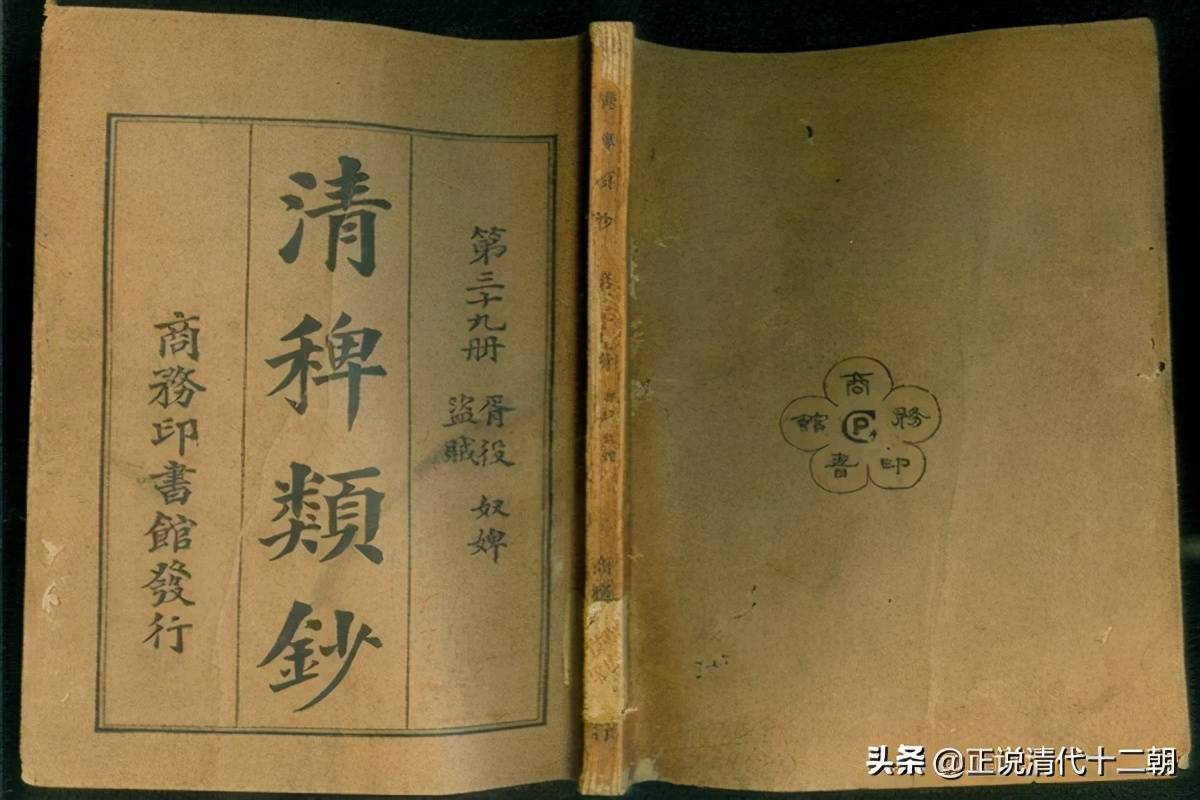 第三十九册
胥役 奴婢
盜賊
清稗類鈔
商務印書館發行
商務印書館
CP
头条 @正说清代十二朝